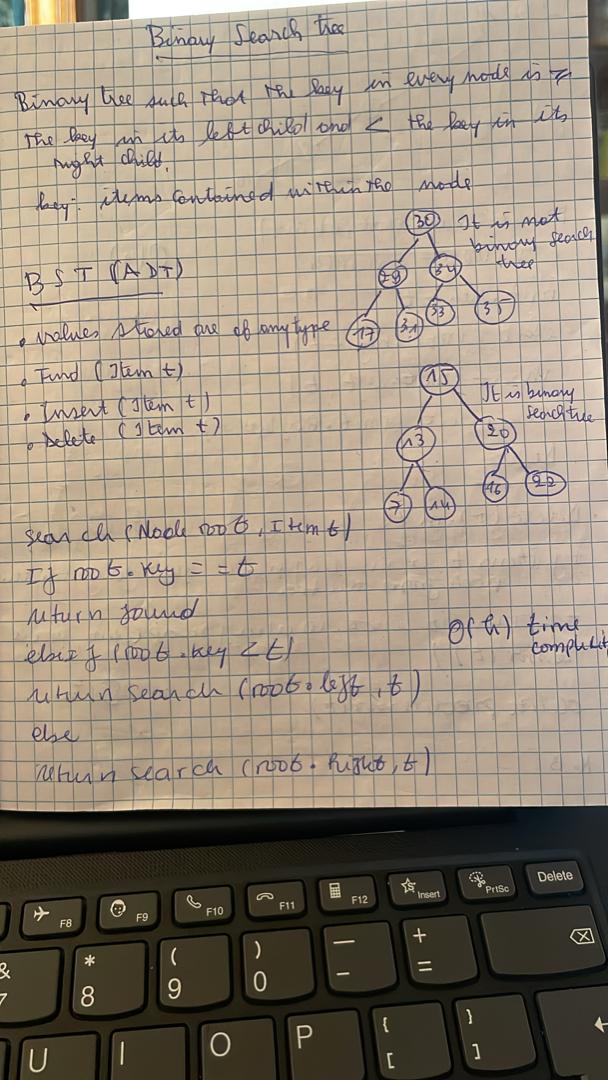 Binary Search tree
Binary tree such that the key in every node is ≥
the key in its left child and < the key in its
right child.
key: items contained within the node
30 It is not
binary search
tree
29 34
17 31 33 35
BST (ADT)
• values stored are of any type
• Find (Item t)
• Insert (Item t)
• Delete (Item t)
15
It is binary
search tree
13 20
7 14 16 22
search (Node root, Item t)
If root.key == t
return found
elseif (root.key < t)
return search (root.left, t)
else
return search (root.right, t)
O(h) time
F8 F9 F10 F11 F12 Insert PrtSc Delete
& * ( ) — +
7 8 9 0 - =
U I O P { [ } ]